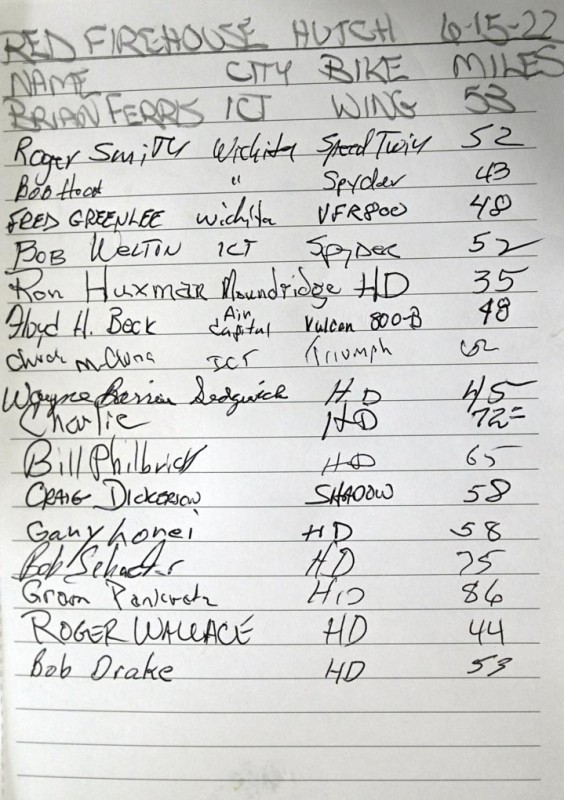 RED FIREHOUSE HUTCH 6-15-22
NAME CITY BIKE MILES
BRIAN FERRIS ICT WING 53
Roger Smith Wichita Speed Twin 52
Bob Hood " Spyder 43
FRED GREENLEE Wichita VFR800 48
BOB WELTON ICT Spyder 52
Ron Huxman Moundridge HD 35
Floyd H. Beck Air Capital Vulcan 800-B 48
Chuck ICT Triumph
Wayne Sedgwick HD 45
Charlie HD 72
Bill Philbrick HD 65
CRAIG DICKERSON SHADOW 58
Gary HD 58
Bob HD 75
HD 86
ROGER WALLACE HD 44
Bob Drake HD 53